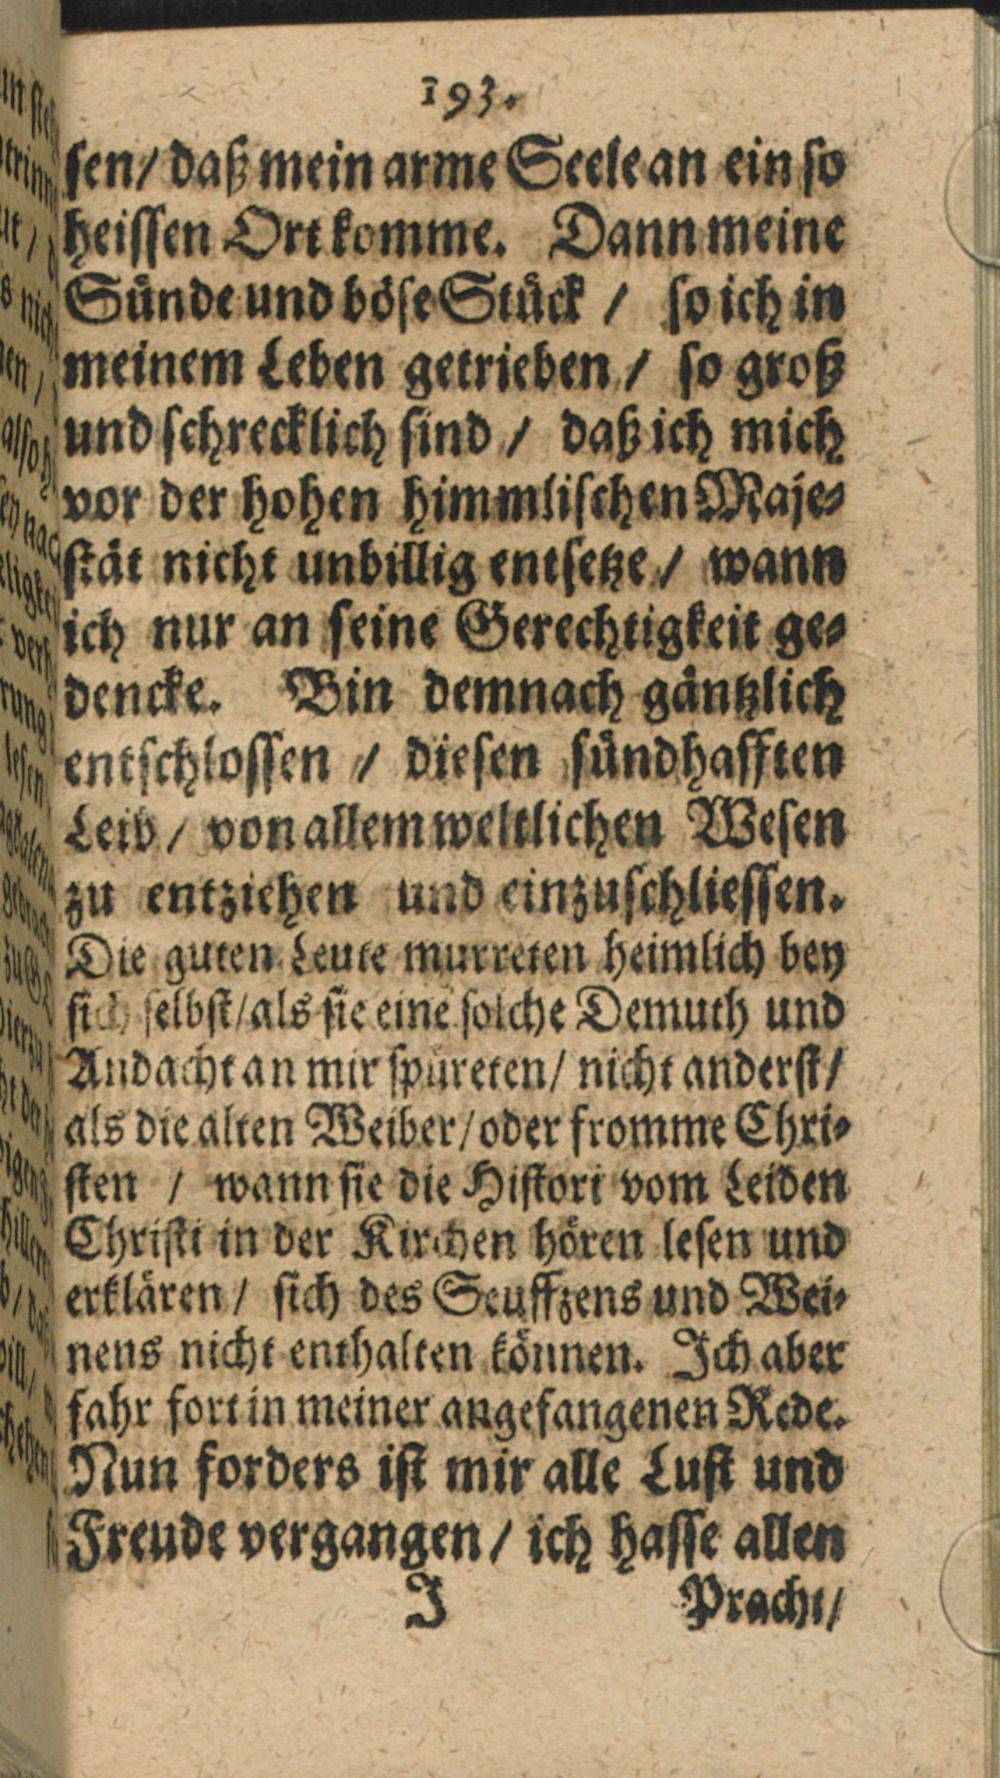 193.
sen/ daß mein arme Seele an ein so
heissen Ort komme. Dann meine
Sünde und böse Stück / so ich in
meinem Leben getrieben / so groß
und schrecklich sind / daß ich mich
vor der hohen himmlischen Maje-
stät nicht unbillig entsetze / wann
ich nur an seine Gerechtigkeit ge-
dencke. Bin demnach gäntzlich
entschlossen / diesen sündhafften
Leib / von allem weltlichen Wesen
zu entziehen und einzuschliessen.
Die guten Leute murreten heimlich bey
sich selbst/ als sie eine solche Demuth und
Andacht an mir spüreten/ nicht anderst/
als die alten Weiber/ oder fromme Chri-
sten / wann sie die Histori vom Leiden
Christi in der Kirchen hören lesen und
erklären / sich des Seuffzens und Wei-
nens nicht enthalten können. Ich aber
fahr fort in meiner angefangenen Rede.
Nun forders ist mir alle Lust und
Freude vergangen / ich hasse allen
J Pracht/